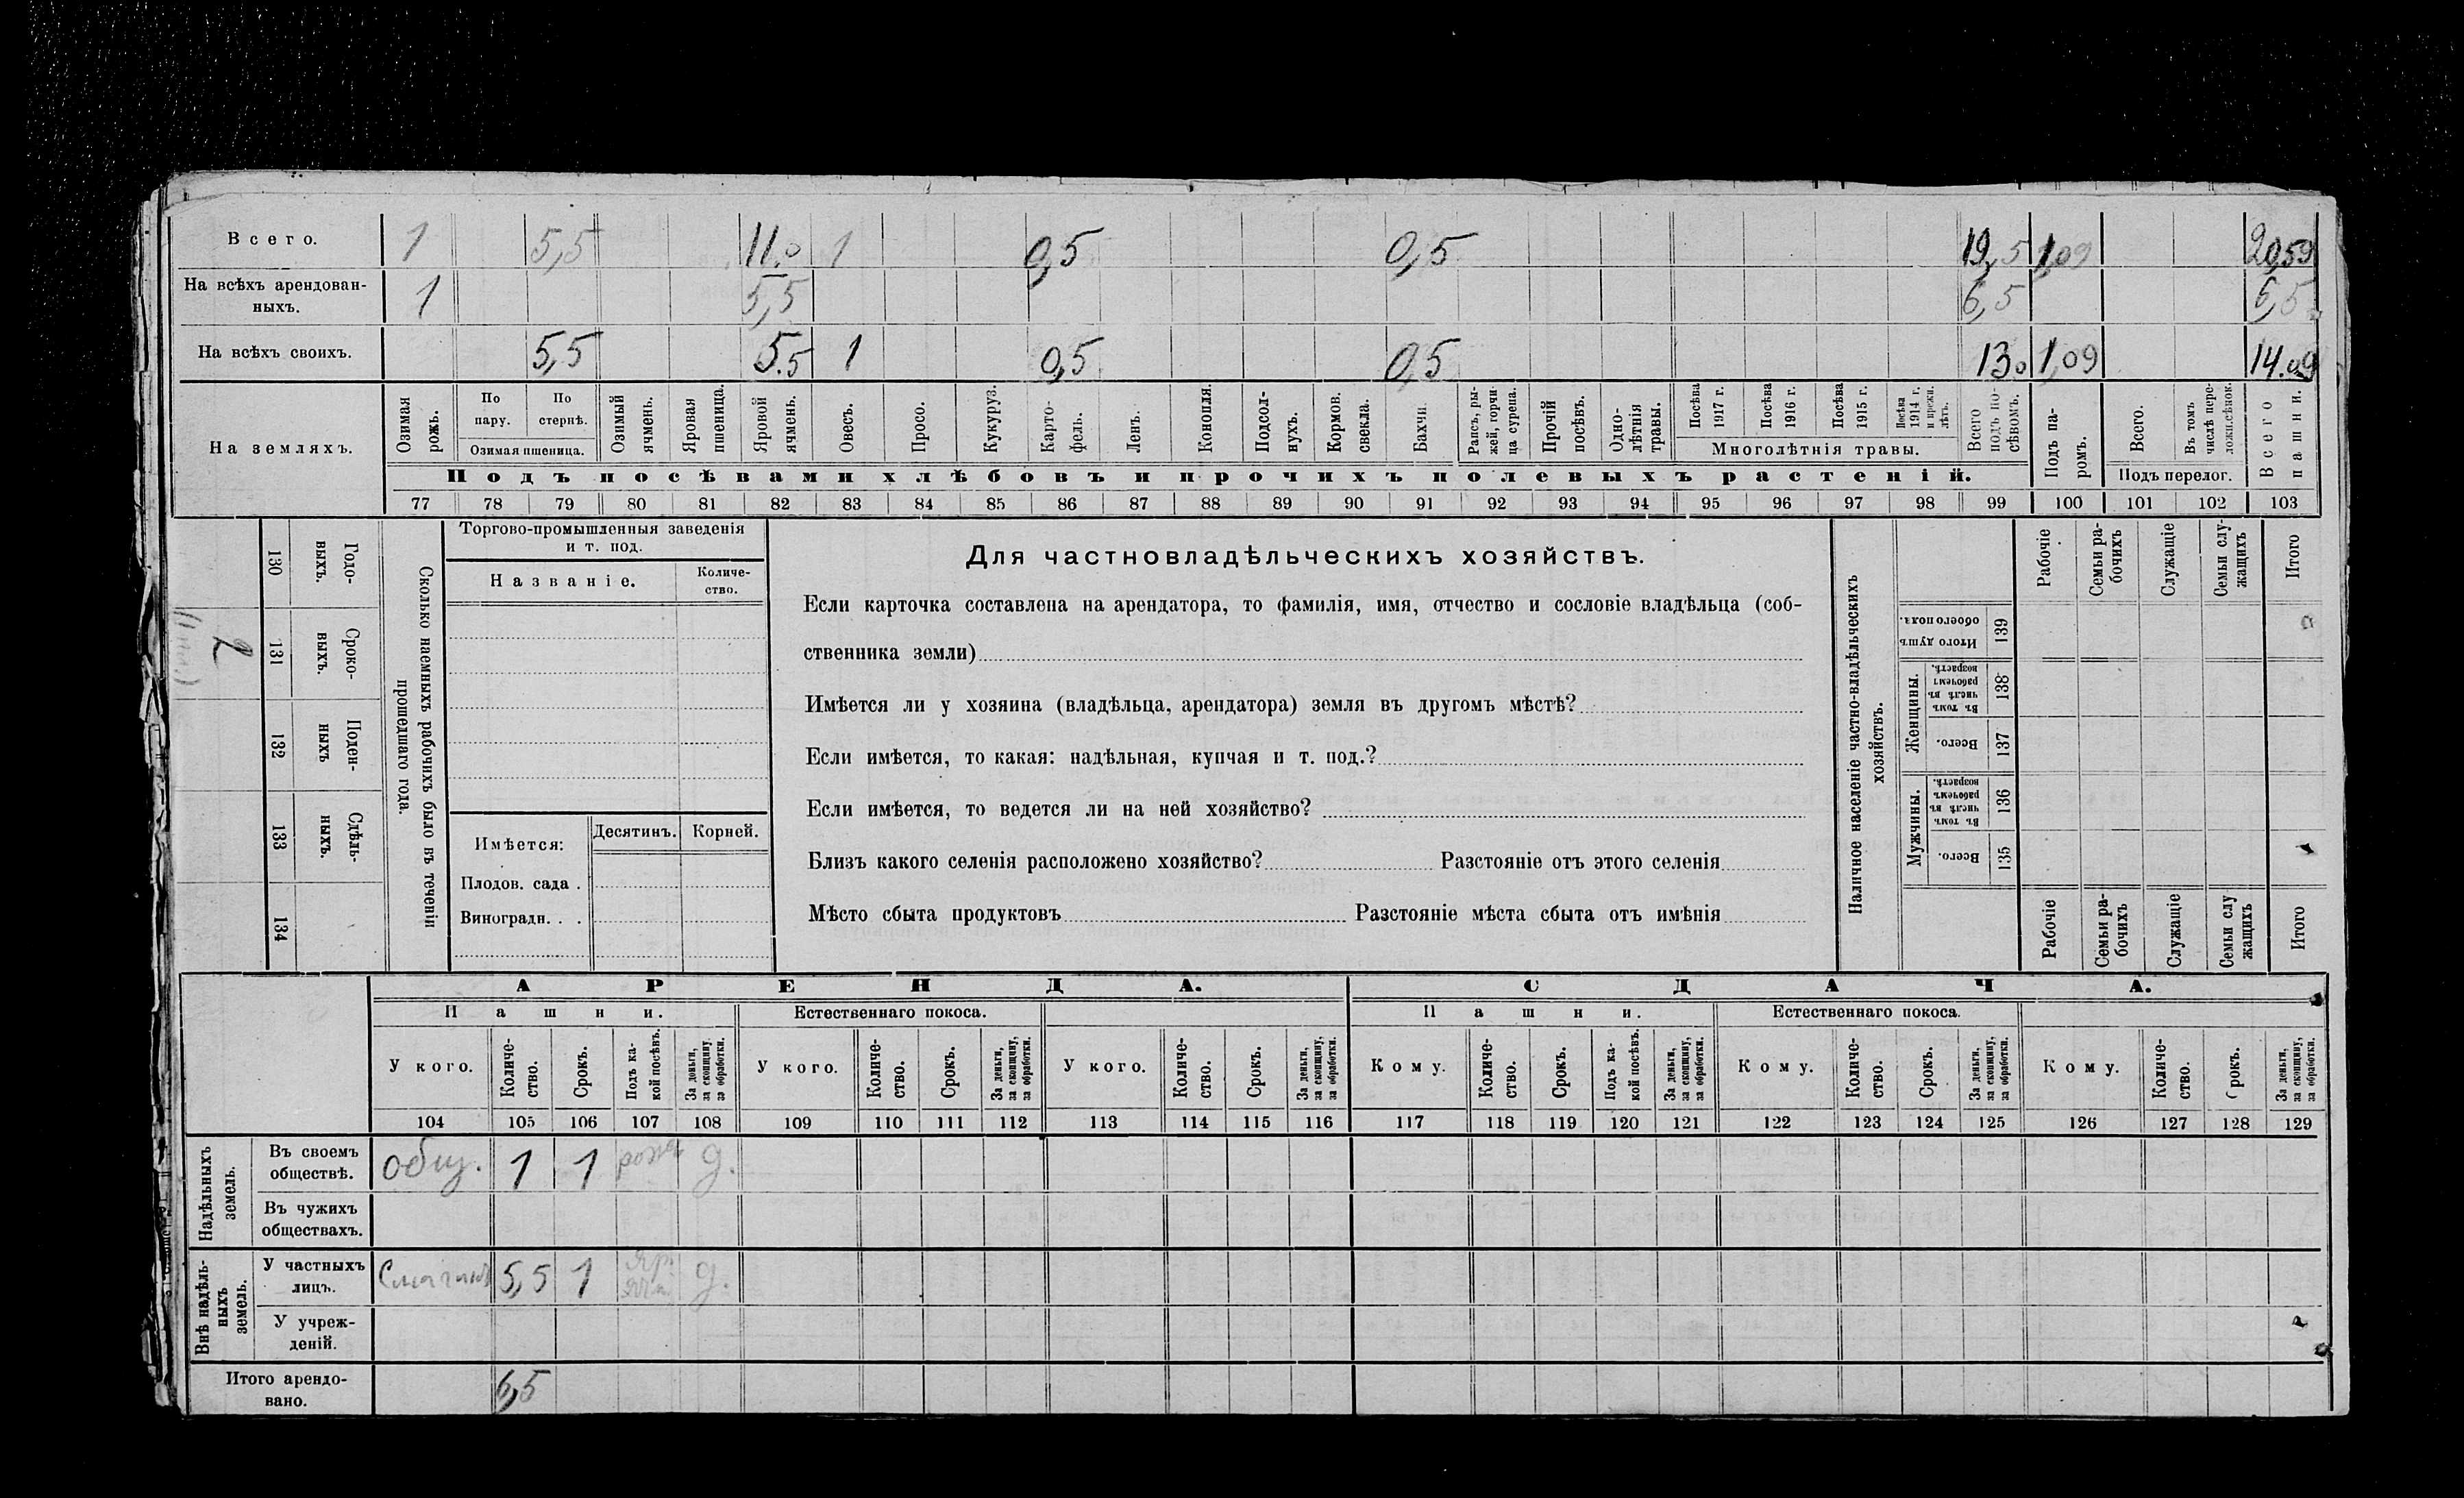 Всего. 1 5,5 11.0 1 0,5 0,5 19,5 1,09 20,59
На всѣхъ арендован-
ныхъ. 1 5,5 6,5 6,5
На всѣхъ своихъ. 5,5 5.5 1 0,5 0,5 13.0 1,09 14.09
На земляхъ.
Озимая рожь.
По пару.
По стернѣ.
Озимая пшеница.
Озимый ячмень.
Яровая пшеница.
Яровой ячмень.
Овесъ.
Просо.
Кукуруз.
Карто-
фель.
Ленъ.
Конопля.
Подсол-
нухъ.
Кормов. свекла.
Бахчи.
Рапсъ, ры-
жей, горчи-
ца сурепа.
Прочій посѣвъ.
Одно-
лѣтнія травы.
Посѣва 1917 г.
Посѣва 1916 г.
Посѣва 1915 г.
Посѣва 1914 г. и прежн. лѣтъ.
Многолѣтнія травы.
Всего подъ по-
сѣвомъ.
Подъ па-
ромъ.
Всего.
Въ томъ числѣ пере-
ложн.сѣнок.
Подъ перелог.
Всего пашни.
Подъ посѣвами хлѣбовъ и прочихъ полевыхъ растеній.
77 78 79 80 81 82 83 84 85 86 87 88 89 90 91 92 93 94 95 96 97 98 99 100 101 102 103
Сколько наемныхъ рабочихъ было въ теченіи
прошедшаго года.
Годо-
выхъ.
130
Сроко-
выхъ.
131
2
Поден-
ныхъ
132
Сдѣль-
ныхъ.
133
134
Торгово-промышленныя заведенія
и т. под.
Названіе.
Количе-
ство.
Имѣется:
Десятинъ. Корней.
Плодов. сада .
Виноградн. . .
Для частновладѣльческихъ хозяйствъ.
Если карточка составлена на арендатора, то фамилія, имя, отчество и сословіе владѣльца (соб-
ственника земли)
Имѣется ли у хозяина (владѣльца, арендатора) земля въ другомъ мѣстѣ?
Если имѣется, то какая: надѣльная, купчая и т. под.?
Если имѣется, то ведется ли на ней хозяйство?
Близъ какого селенія расположено хозяйство? Разстояніе отъ этого селенія
Мѣсто сбыта продуктовъ Разстояніе мѣста сбыта отъ имѣнія
Наличное населеніе частно-владѣльческихъ
хозяйствъ.
Рабочіе
Семьи ра-
бочихъ
Служащіе
Семьи слу-
жащихъ
Итого
Итого душъ обоего пола.
139
Женщины.
Въ томъ числѣ въ рабочемъ возрастѣ.
138
Всего.
137
Мужчины.
Въ томъ числѣ въ рабочемъ возрастѣ.
136
Всего.
135
Рабочіе
Семьи ра-
бочихъ
Служащіе
Семьи слу
жащихъ
Итого
АРЕНДА. СДАЧА.
Пашни. Естественнаго покоса. Пашни. Естественнаго покоса.
У кого.
Количе-
ство.
Срокъ.
Подъ ка-
кой посѣвъ.
За деньги,
за скопщину,
за обработки.
У кого.
Количе-
ство.
Срокъ.
За деньги,
за скопщину,
за обработки.
У кого.
Количе-
ство.
Срокъ.
За деньги,
за скопщину,
за обработки.
Кому.
Количе-
ство.
Срокъ.
Подъ ка-
кой посѣвъ.
За деньги,
за скопщину,
за обработки.
Кому.
Количе-
ство.
Срокъ.
За деньги,
за скопщину,
за обработки.
Кому.
Количе-
ство.
Срокъ.
За деньги,
за скопщину,
за обработки.
104 105 106 107 108 109 110 111 112 113 114 115 116 117 118 119 120 121 122 123 124 125 126 127 128 129
Надѣльныхъ
земель.
Въ своемъ
обществѣ. общ. 1 1 рожь д.
Въ чужихъ
обществахъ.
Внѣ надѣль-
ныхъ
земель.
У частныхъ
лицъ. 5,5 1 яр. яч. д.
У учреж-
деній.
Итого арендо-
вано. 6,5